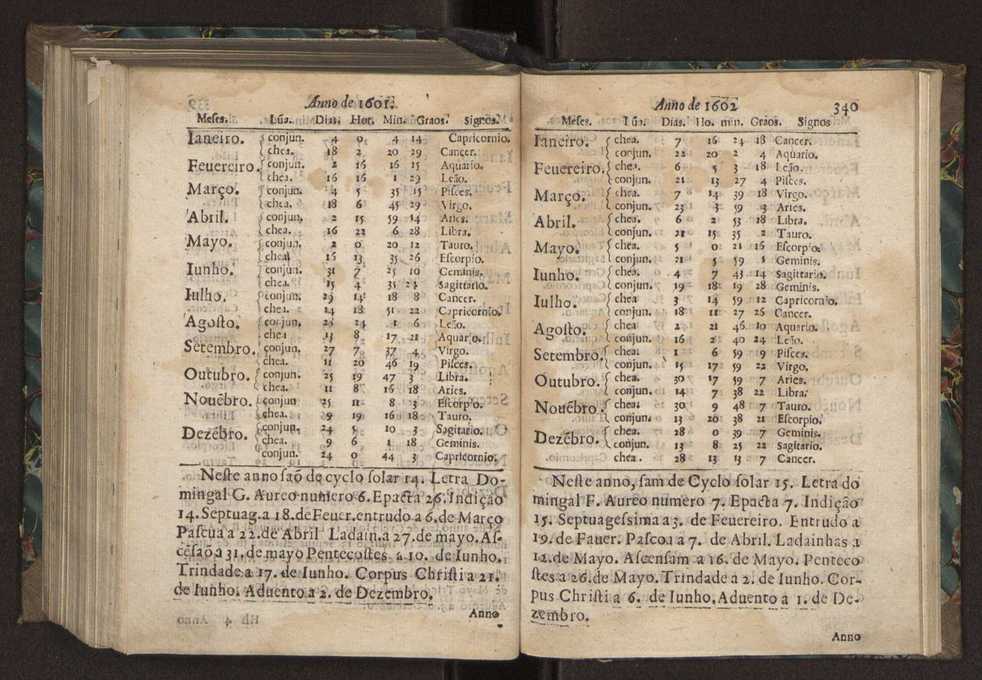 Anno de 1601.
Meses. Lũa. Dias. Hor. Min. Graos. Signos.
Ianeiro. conjun. 4 0 4 14 Capricornio.
chea. 18 2 20 29 Cancer.
Feuereiro. conjun. 2 16 16 15 Aquario.
chea. 16 16 1 29 Leão.
Março. conjun. 4 5 35 15 Pisces.
chea. 18 6 45 29 Virgo.
Abril. conjun. 2 15 59 14 Aries.
chea. 16 22 6 28 Libra.
Mayo. conjun. 2 0 20 12 Tauro.
chea 16 13 35 26 Escorpio.
Iunho. conjun. 31 7 25 10 Geminis.
chea. 15 4 31 24 Sagittario.
Iulho. conjun. 29 14 18 8 Cancer.
chea. 14 18 51 22 Capricornio.
Agosto. conjun. 24 1 6 Leão.
chea 13 8 17 21 Aquario.
Setembro. conjun. 27 7 37 4 Virgo.
chea. 11 20 46 19 Pisces.
Outubro. conjun. 25 19 47 3 Libra.
chea. 11 8 16 18 Aries.
Nouẽbro. conjun 25 11 8 3 Escorpio.
chea. 9 19 16 18 Tauro.
Dezẽbro. conjun. 24 5 10 3 Sagitario.
chea. 9 6 1 18 Geminis.
conjun. 24 0 44 3 Capricornio.
Neste anno saõ de cyclo solar 14. Letra Do-
mingal G. Aureo numero 6. Epacta 26. Indição
14. Septuag. a 18. de Feuer. entrudo a 6. de Março
Pascua a 22. de Abril Ladain. a 27. de mayo. As-
cẽsaõ a 31. de mayo Pentecostes a 10. de Iunho.
Trindade a 17. de Iunho. Corpus Christi a 21.
de Iunho. Aduento a 2. de Dezembro.
Anno
Anno de 1602 340
Meses. Lũa. Dias. Ho. min. Graos. Signos
Ianeiro. chea. 7 16 24 18 Cancer.
conjun. 22 20 2 4 Aquario.
Feuereiro. chea. 6 5 3 18 Leão.
conjun. 21 13 27 4 Pisces.
Março. chea. 7 14 39 18 Virgo.
conjun. 23 3 59 3 Aries.
Abril. chea. 6 2 53 18 Libra.
conjun. 21 15 35 2 Tauro.
Mayo. chea. 5 0 21 16 Escorpio.
conjun. 21 5 59 1 Geminis.
Iunho. chea. 4 7 45 14 Sagittario.
conjun. 19 18 19 28 Geminis.
Iulho. chea 3 14 59 12 Capricornio.
conjun. 18 11 27 26 Cancer.
Agosto. chea 21 46 10 Aquario.
conjun. 16 2 40 24 Leão.
Setembro. chea. 1 6 59 9 Pisces.
conjun. 15 17 59 22 Virgo.
Outubro. chea. 30 17 59 7 Aries.
conjun. 14 7 38 22 Libra.
Nouẽbro. chea. 30 9 48 7 Tauro.
conjun. 13 20 38 21 Escorpio.
Dezẽbro. chea. 28 0 39 7 Geminis.
conjun. 13 8 25 22 Sagitario.
chea. 28 13 13 7 Cancer.
Neste anno, sam de Cyclo solar 15. Letra do
mingal F. Aureo numero 7. Epacta 7. Indição
15. Septuagessima a 3. de Feuereiro. Entrudo a
19. de Fauer. Pascoa a 7. de Abril. Ladainhas a
12. de Mayo. Ascensam a 16. de Mayo. Penteco
stes a 26. de Mayo. Trindade a 2. de Iunho. Cor-
pus Christi a 6. de Iunho. Aduento a 1. de De-
zembro.
Anno